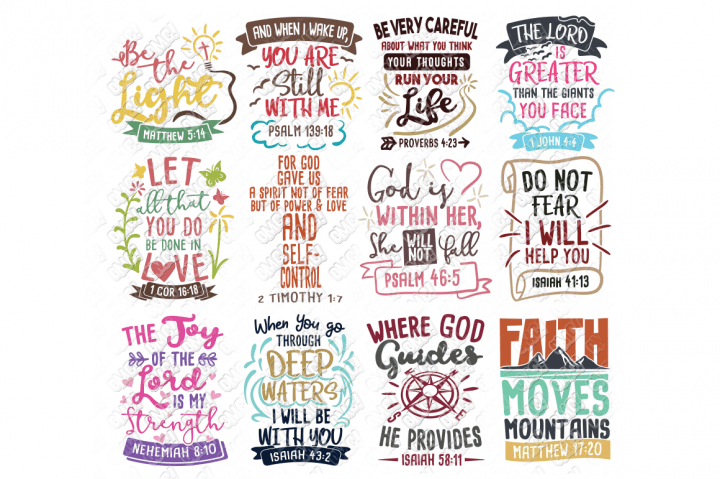 Be
the
Light
MATTHEW 5:14
AND WHEN I WAKE UP,
YOU ARE
Still
WITH ME
PSALM 139:18
BE VERY CAREFUL
ABOUT WHAT YOU THINK
YOUR THOUGHTS
RUN YOUR
Life
PROVERBS 4:23
THE LORD
IS
GREATER
THAN THE GIANTS
YOU FACE
1 JOHN 4:4
LET
all that
YOU DO
BE DONE IN
LOVE
1 COR 16:18
FOR GOD
GAVE US
A SPIRIT NOT OF FEAR
BUT OF POWER & LOVE
AND
SELF-
CONTROL
2 TIMOTHY 1:7
God is
WITHIN HER,
She WILL NOT fall
PSALM 46:5
DO NOT
FEAR
I WILL
HELP YOU
ISAIAH 41:13
THE Joy
OF THE
Lord
IS MY
Strength
NEHEMIAH 8:10
When You go
THROUGH
DEEP
WATERS
I WILL BE
WITH YOU
ISAIAH 43:2
WHERE GOD
Guides
HE PROVIDES
ISAIAH 58:11
FAITH
MOVES
MOUNTAINS
MATTHEW 17:20